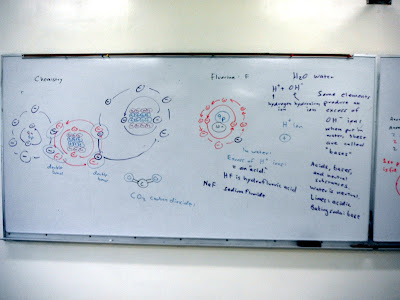 Chemistry
double bond
double bond
CO₂ carbon dioxide
Fluorine: F
In water:
Excess of H⁺ ions:
"an acid"
HF is hydrofluoric acid
NaF sodium fluoride
H₂O water
H⁺ + OH⁻
hydrogen ion
hydroxide ion
H⁺ ion
Some elements
produce an
excess of
OH⁻ ions
when put in
water; these
are called
"bases"
Acids, bases,
and neutral
substances
Water is neutral.
Limes: acidic
Baking soda: base